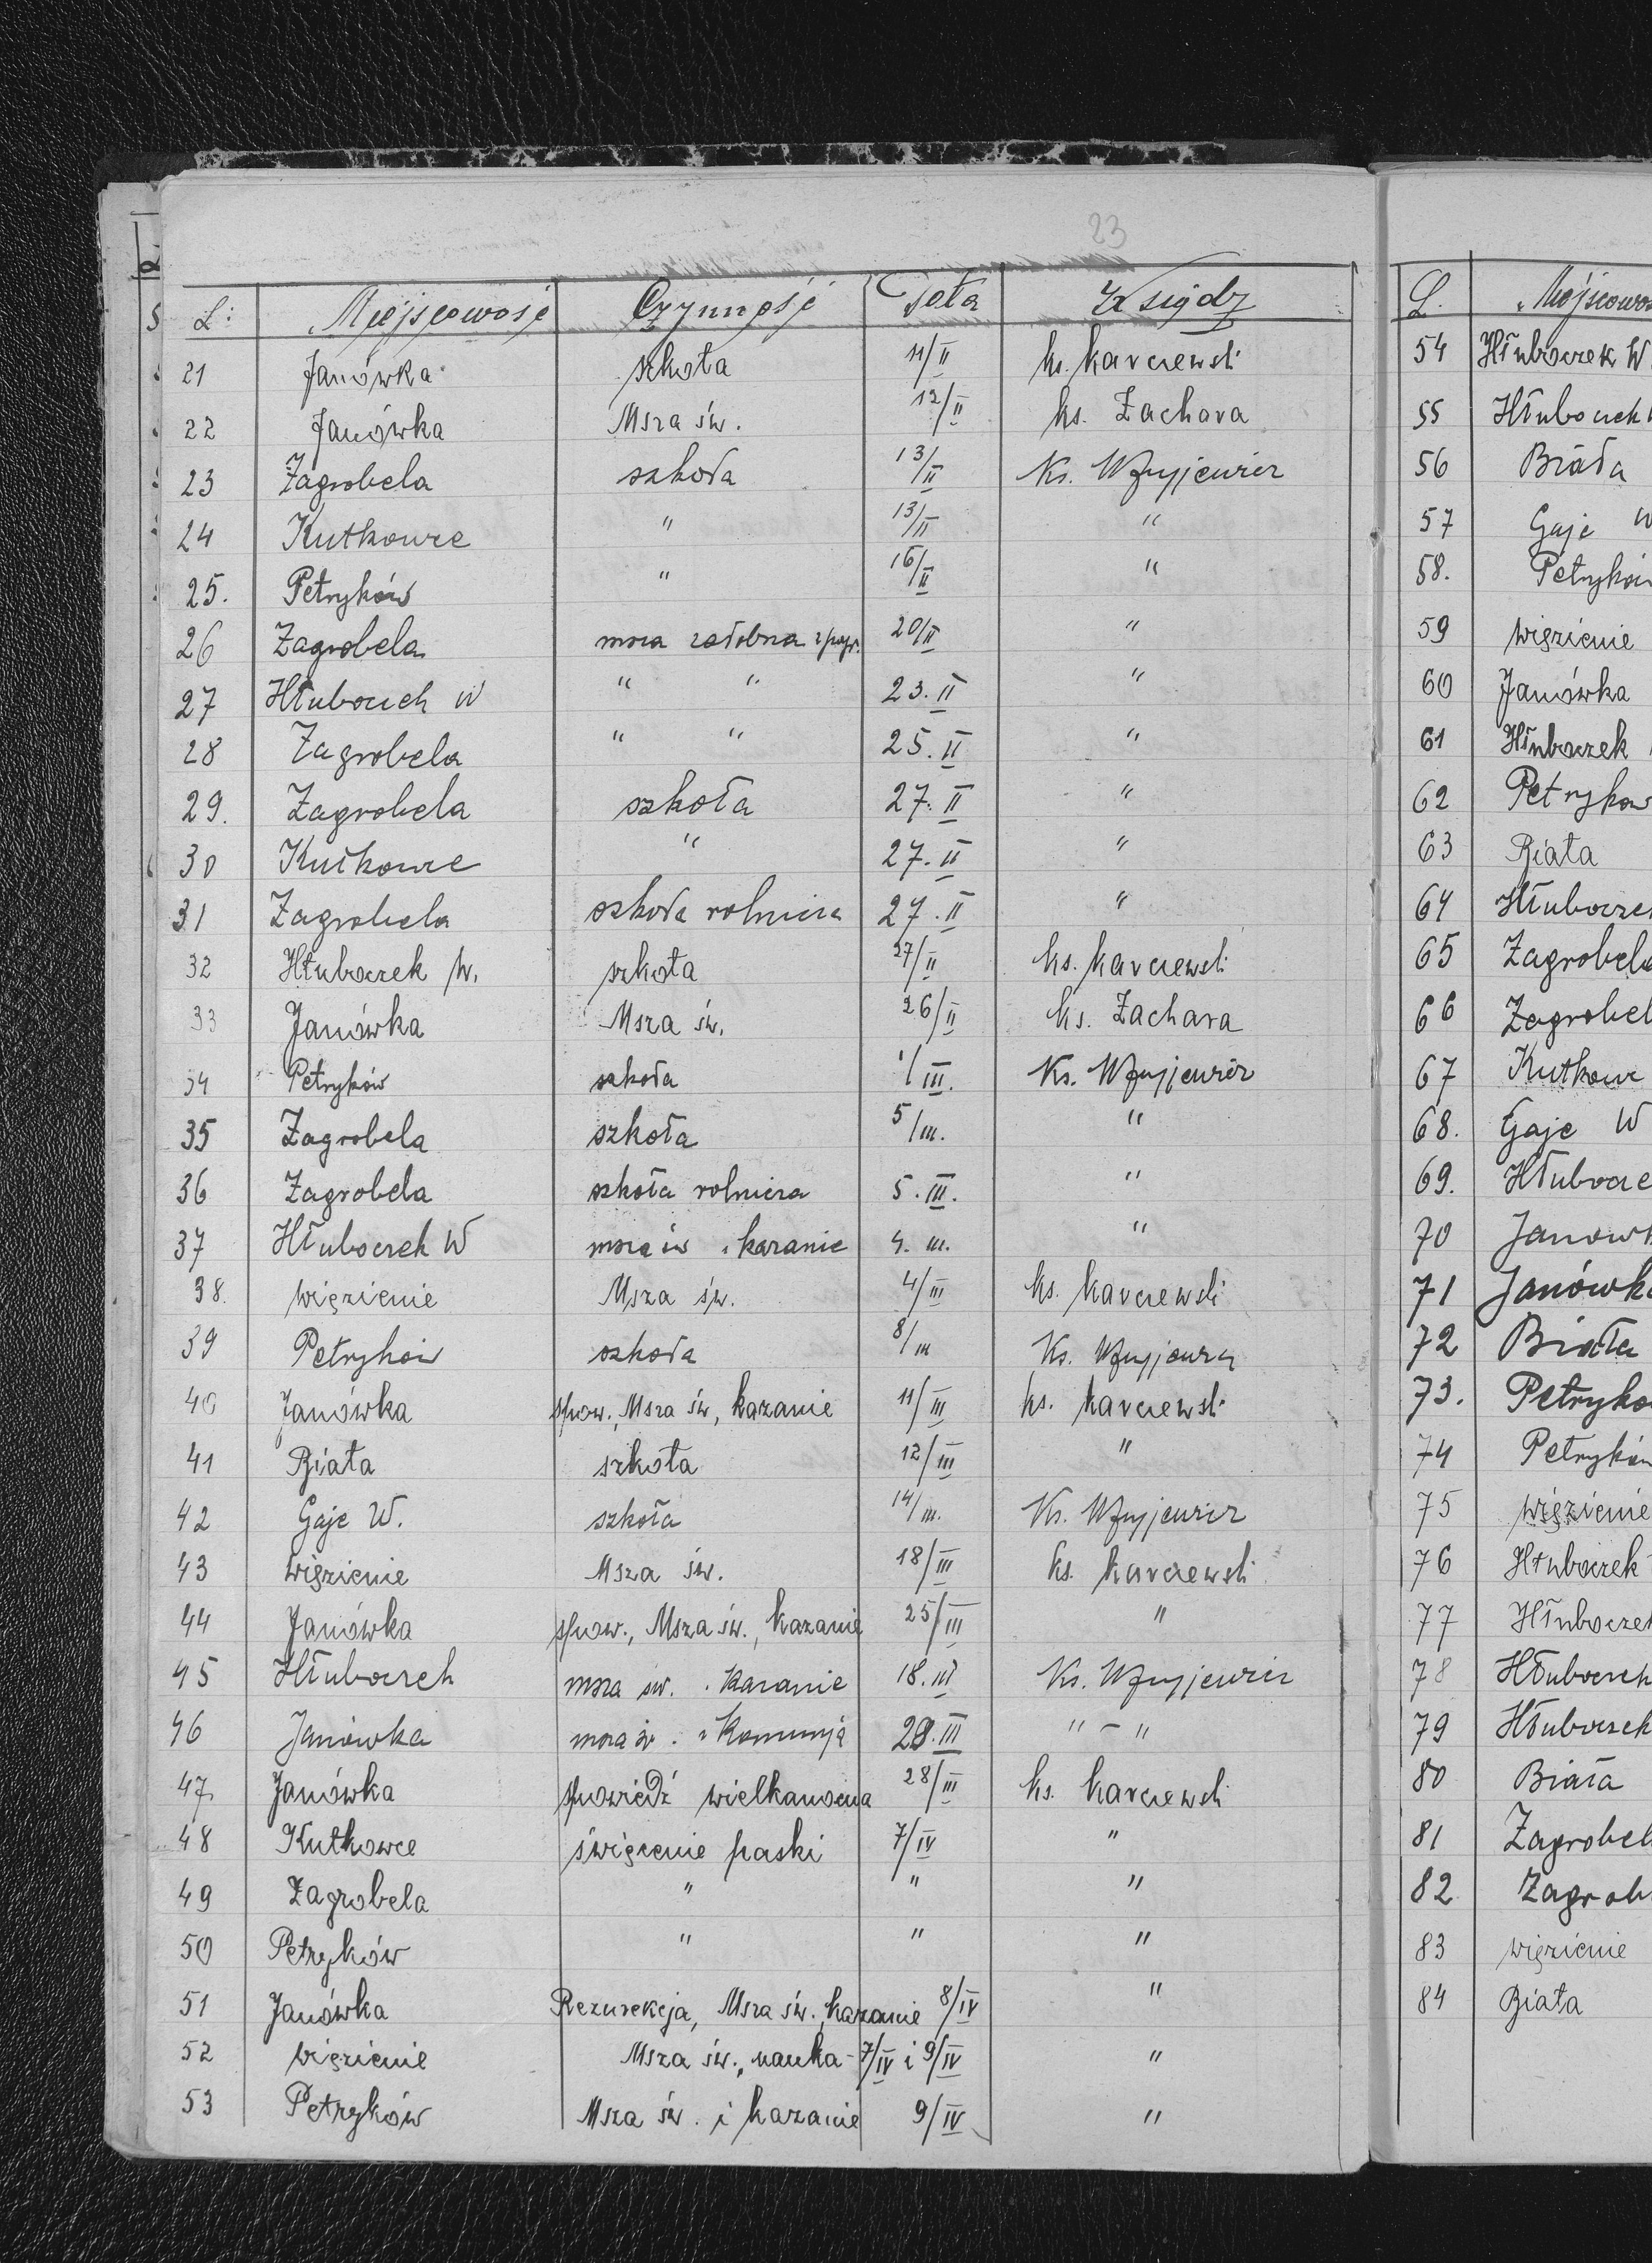 23
L: Miejscowość Czynność Data Księdz
21 Janówka szkoła 11/II ks. Karczewski
22 Janówka Msza św. 12/II ks. Zachara
23 Zagrobela szkoła 13/II Ks.
24 Kutkowce " 13/II "
25. Petryków " 16/II "
26 Zagrobela msza żałobna z pogr. 20/II "
27 Hłuboczek W " " 23. II "
28 Zagrobela " " 25. II "
29. Zagrobela szkoła 27. II "
30 Kutkowce " 27. II "
31 Zagrobela szkoła rolnicza 27. II "
32 Hłuboczek W. szkoła 27/II ks. Karczewski
33 Janówka Msza św. 26/II ks. Zachara
34 Petryków szkoła 1/III. Ks.
35 Zagrobela szkoła 5/III. "
36 Zagrobela szkoła rolnicza 5. III. "
37 Hłuboczek W msza św i kazanie 4. III. "
38. więzienie Msza św. 4/III ks. Karczewski
39 Petryków szkoła 8/III Ks.
40 Janówka spow., Msza św, kazanie 11/III ks. Karczewski
41 Biała szkoła 12/III "
42 Gaje W. szkoła 14/III. Ks.
43 więzienie Msza św. 18/III ks. Karczewski
44 Janówka spow., Msza św., kazanie 25/III "
45 Hłuboczek msza św. i kazanie 18. III Ks.
46 Janówka msza św. i Komunja 28. III " - "
47. Janówka spowiedź wielkanocna 28/III ks. Karczewski
48 Kutkowce święcenie paski 7/IV "
49 Zagrobela " " "
50 Petryków " " "
51 Janówka Rezurekcja, Msza św., kazanie 8/IV "
52 więzienie Msza św., nauka - 7/IV i 9/IV "
53 Petryków Msza św. i kazanie 9/IV "
L. Miejscowoś
54 Hłuboczek W.
55 Hłuboczek
56 Biała
57 Gaje W
58. Petryków
59 więzienie
60 Janówka
61 Hłuboczek
62 Petryków
63 Biała
64 Hłuboczek
65 Zagrobela
66 Zagrobel
67 Kutkowc
68. Gaje W
69. Hłubocze
70 Janówk
71 Janówka
72 Biała
73. Petryko
74 Petryków
75 więzienie
76 Hłuboczek
77 Hłuboczek
78 Hłuboczek
79 Hłuboczek
80 Biała
81 Zagrobel
82 Zagrob
83 więzienie
84 Biała